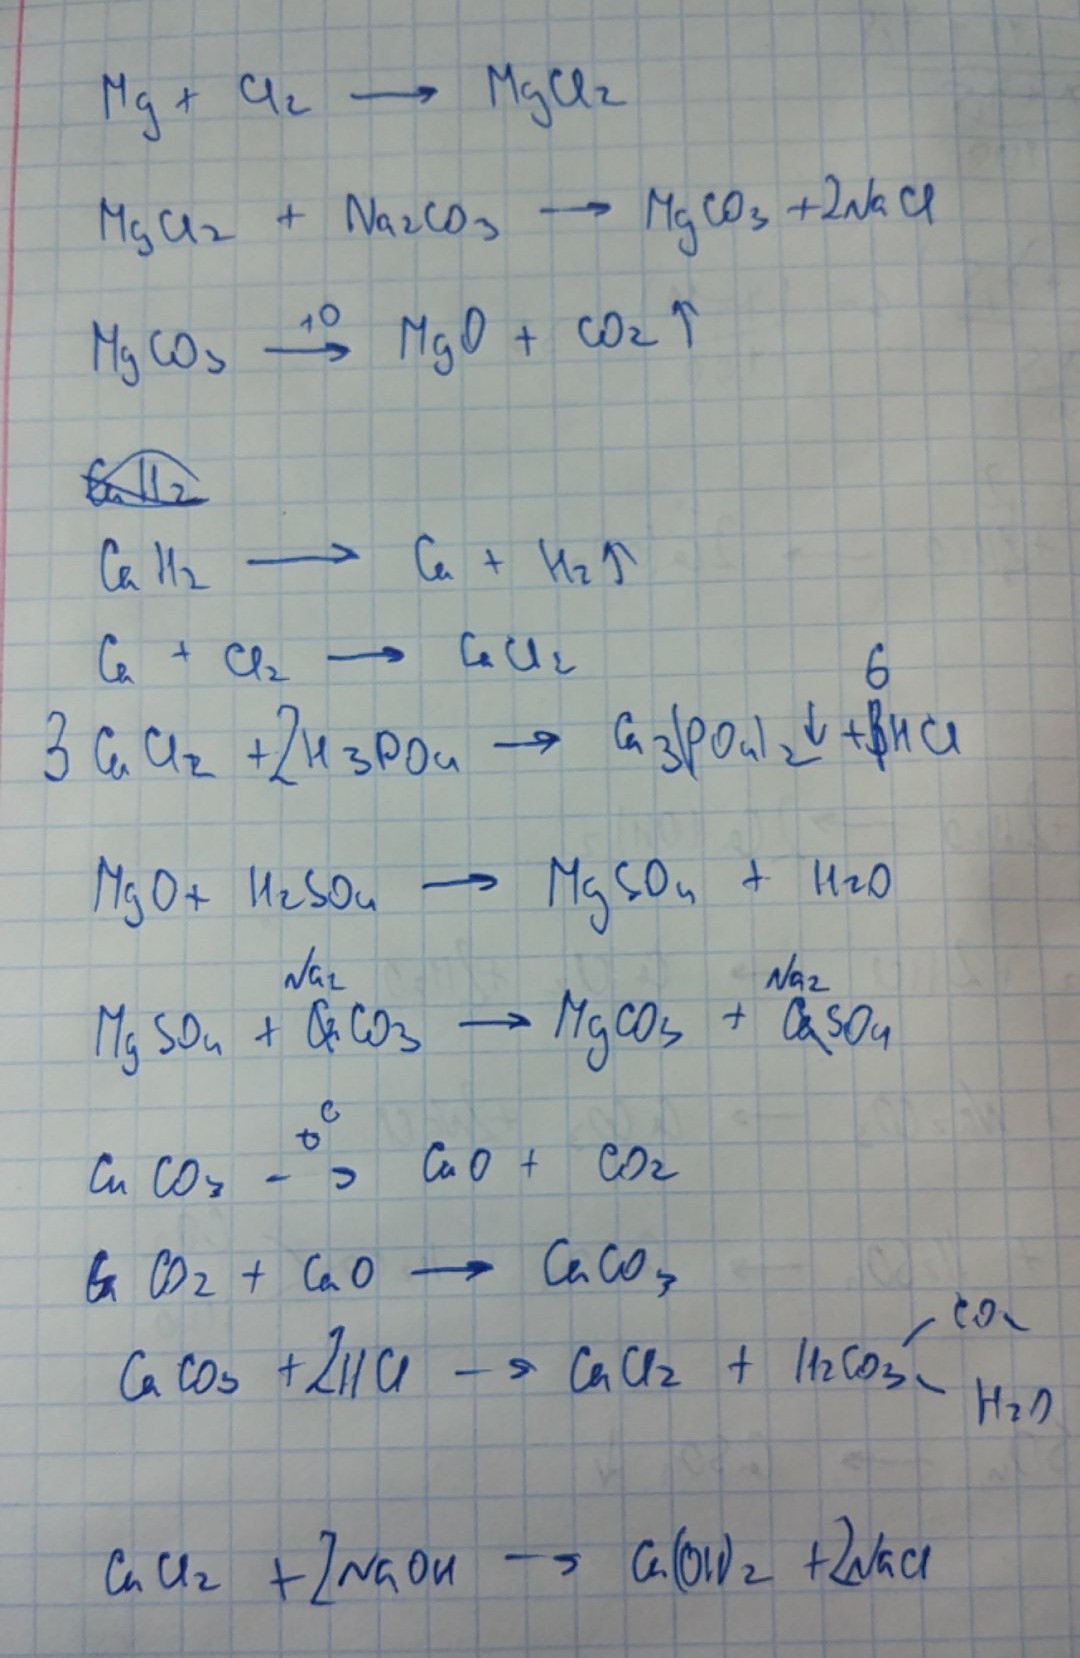 Mg + Cl2 → MgCl2
MgCl2 + Na2CO3 → MgCO3 + 2NaCl
t0
MgCO3 → MgO + CO2 ↑
CaH2
CaH2 → Ca + H2 ↑
Ca + Cl2 → CaCl2
6
3 CaCl2 + 2H3PO4 → Ca3(PO4)2 ↓ + HCl
MgO + H2SO4 → MgSO4 + H2O
Na2 Na2
MgSO4 + CaCO3 → MgCO3 + CaSO4
t0
CaCO3 → CaO + CO2
CO2 + CaO → CaCO3
CO2
CaCO3 + 2HCl → CaCl2 + H2CO3
H2O
CaCl2 + 2NaOH → Ca(OH)2 + 2NaCl